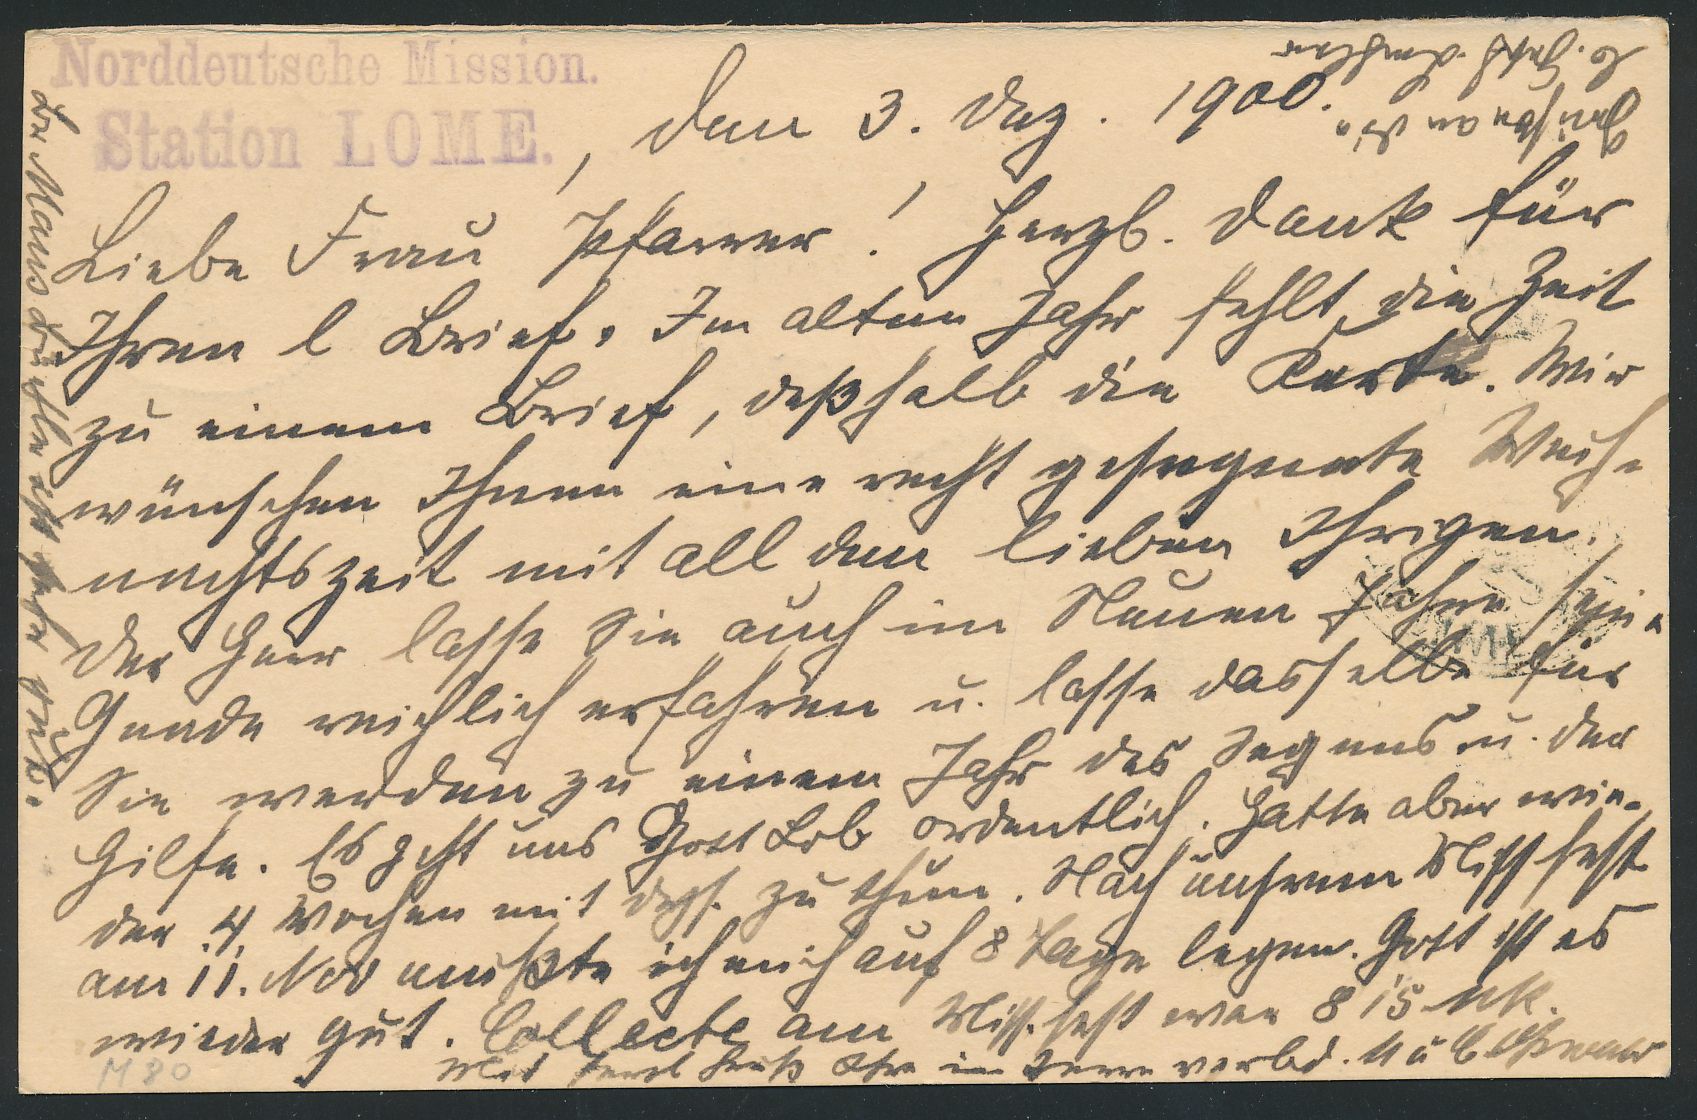 Norddeutsche Mission.
Station LOME.
, den 3. Dez. 1900.
Liebe Frau Pfarrer! Herzl. Dank für
Ihren l Brief. Im alten Jahr fehlt die Zeit
zu einem Brief, deßhalb die Karte. Wir
wünschen Ihnen eine recht gesegnete Weih-
nachtszeit mit all den lieben Ihrigen.
Der Herr lasse Sie auch im Neuen Jahre seine
Gnade reichlich erfahren u. lasse dasselbe für
Sie werden zu einem Jahr des Segens u. der
Hilfe. Es geht uns Gott Lob ordentlich. Hatte aber wie-
der 4 Wochen mit zu thun. Nach unsrem Missfest
am 11. Nov mußte ich mich auf 8 Tage legen. Gott ist es
wieder gut. Collecte am Miss.fest war 815 Mk.
Mit herzl im Herrn verbd.
ist sehr gut.
M30